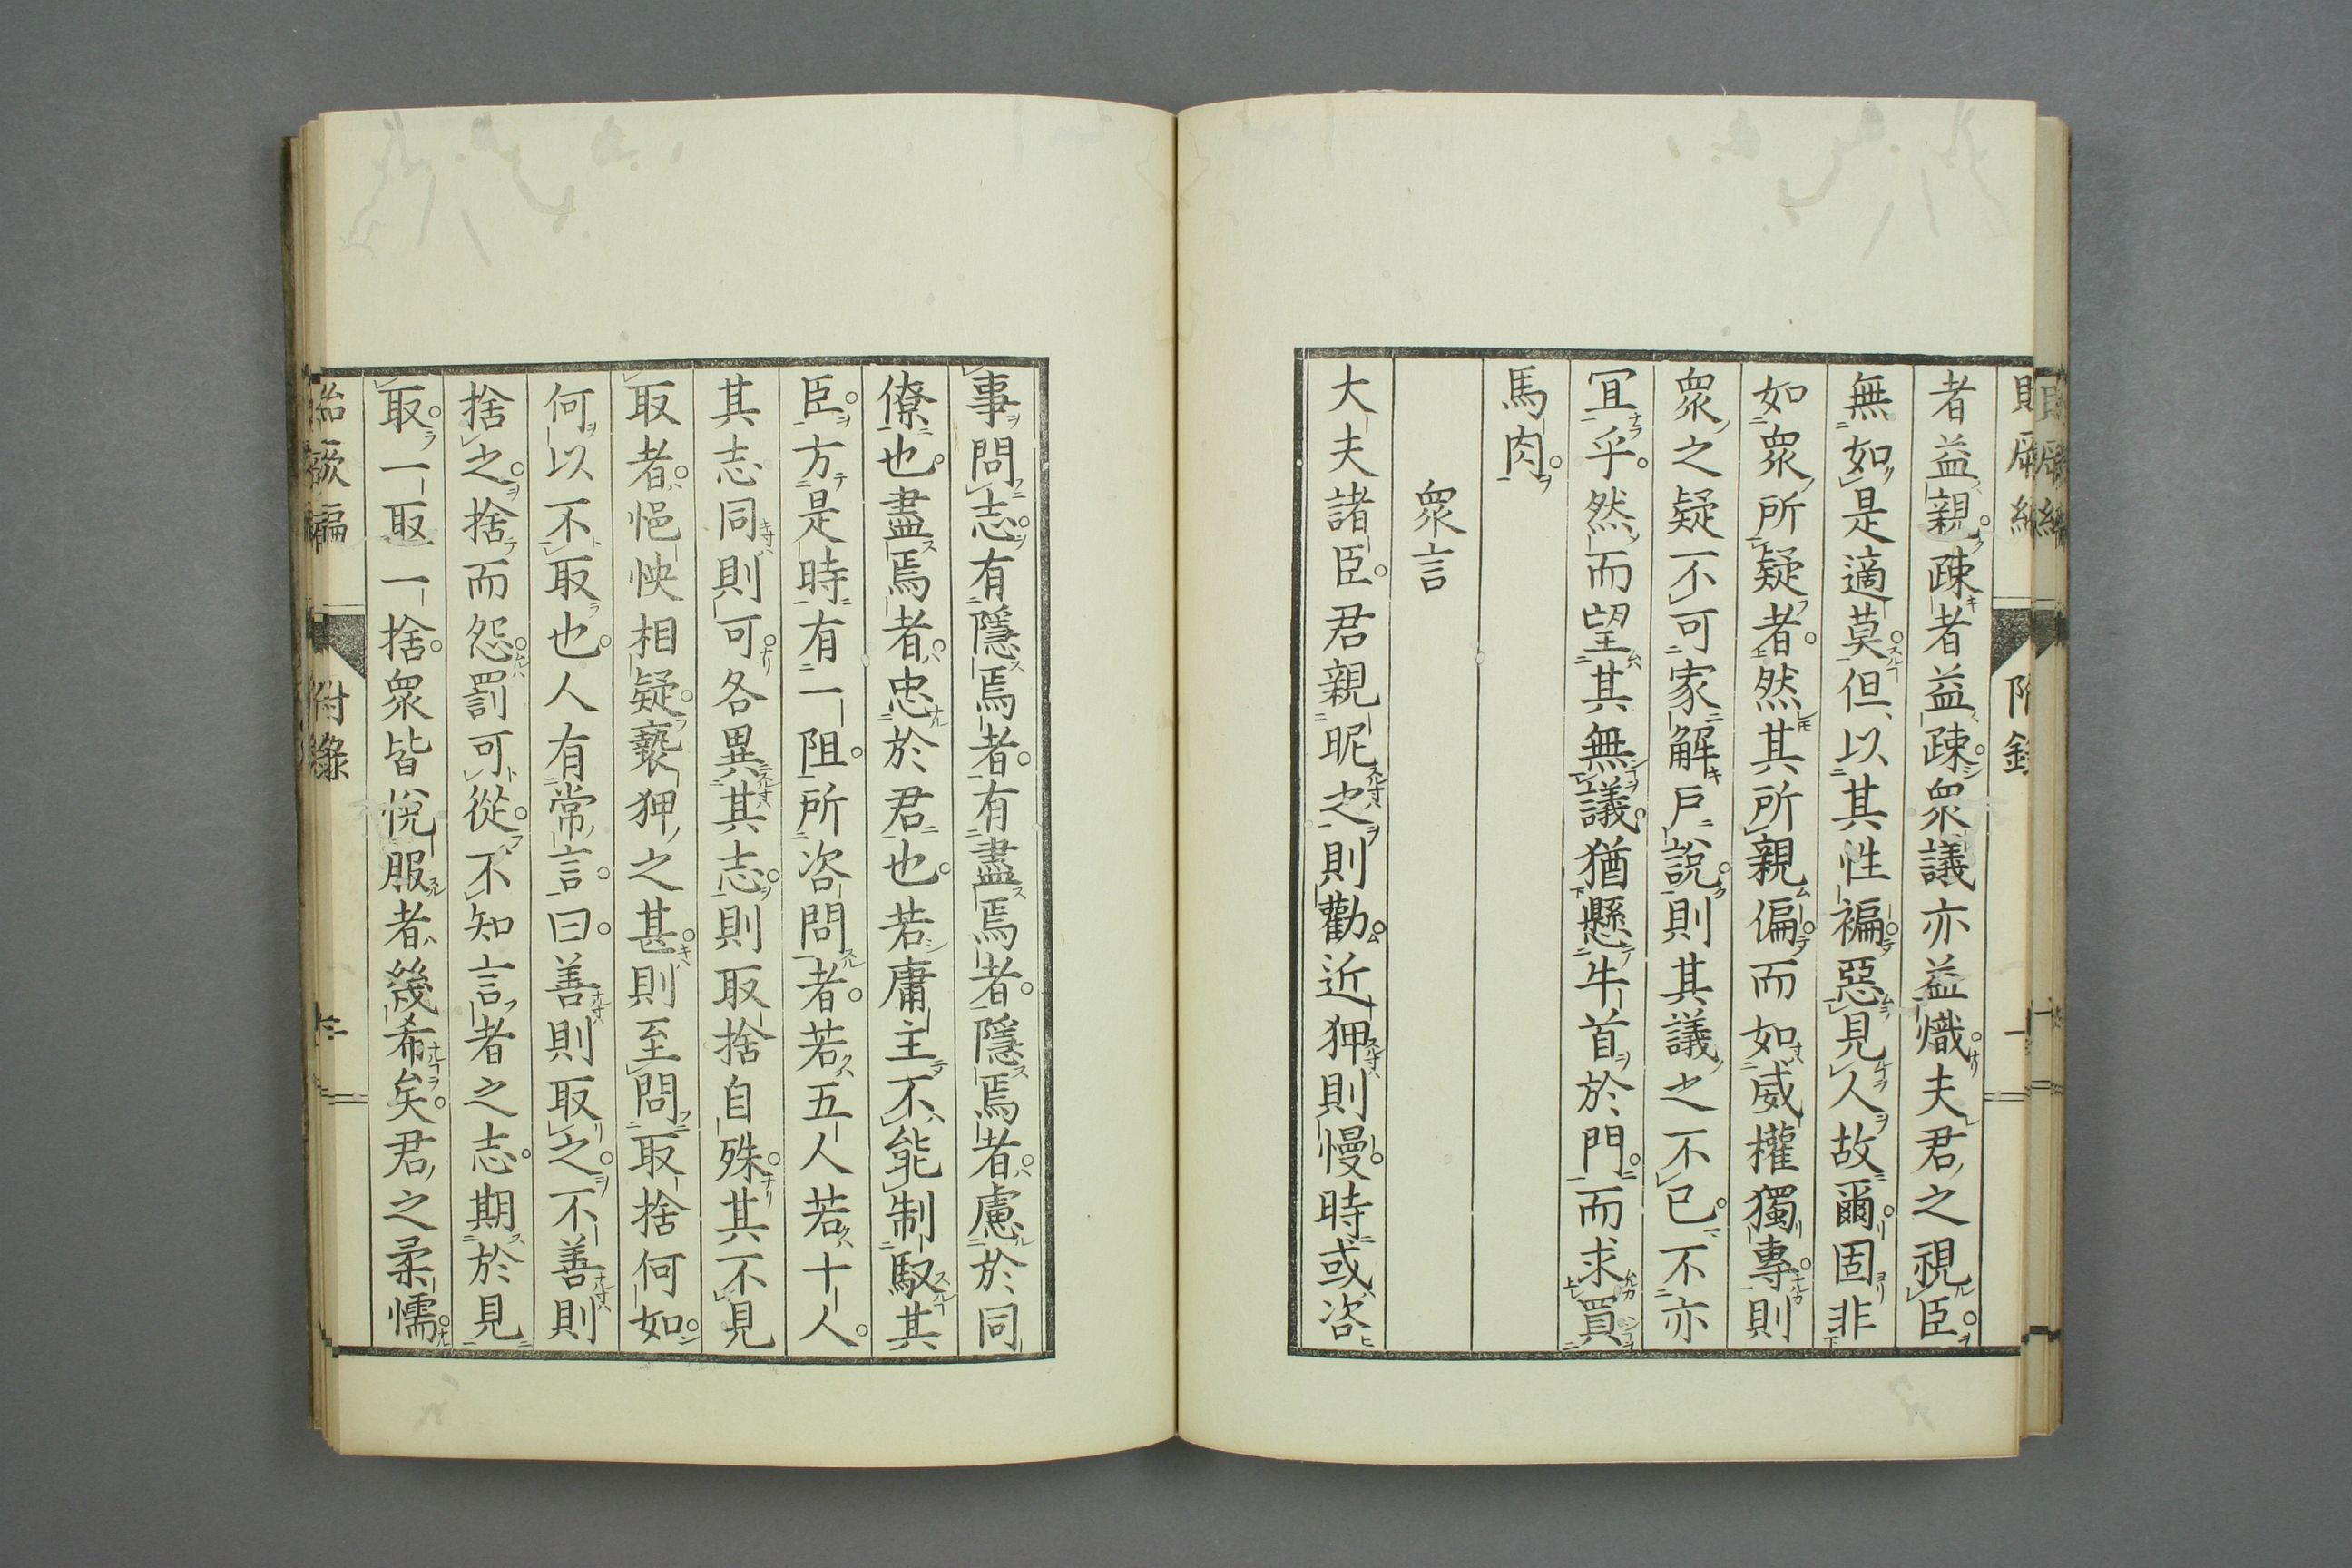 者益親疎者益疎衆議亦益熾夫君之視臣
無如是適莫但以其性褊惡見人故爾固非
如衆所疑者然其所親偏而如威權獨專則
衆之疑不可家解戶說則其議之不已不亦
冝乎然而望其無議猶懸牛首於門而求買
馬肉
衆言
大夫諸臣君親昵之則勸近狎則慢時或咨
事問志有隱焉者有盡焉者隱焉者慮於同
僚也盡焉者忠於君也若庸主不能制馭其
臣方是時有一阻所咨問者若五人若十人
其志同則可各異其志則取捨自殊其不見
取者悒怏相疑褻狎之甚則至問取捨何如
何以不取也人有常言曰善則取之不善則
捨之捨而怨罰可從不知言者之志期於見
取一取一捨衆皆悅服者幾希矣君之柔懦
附錄